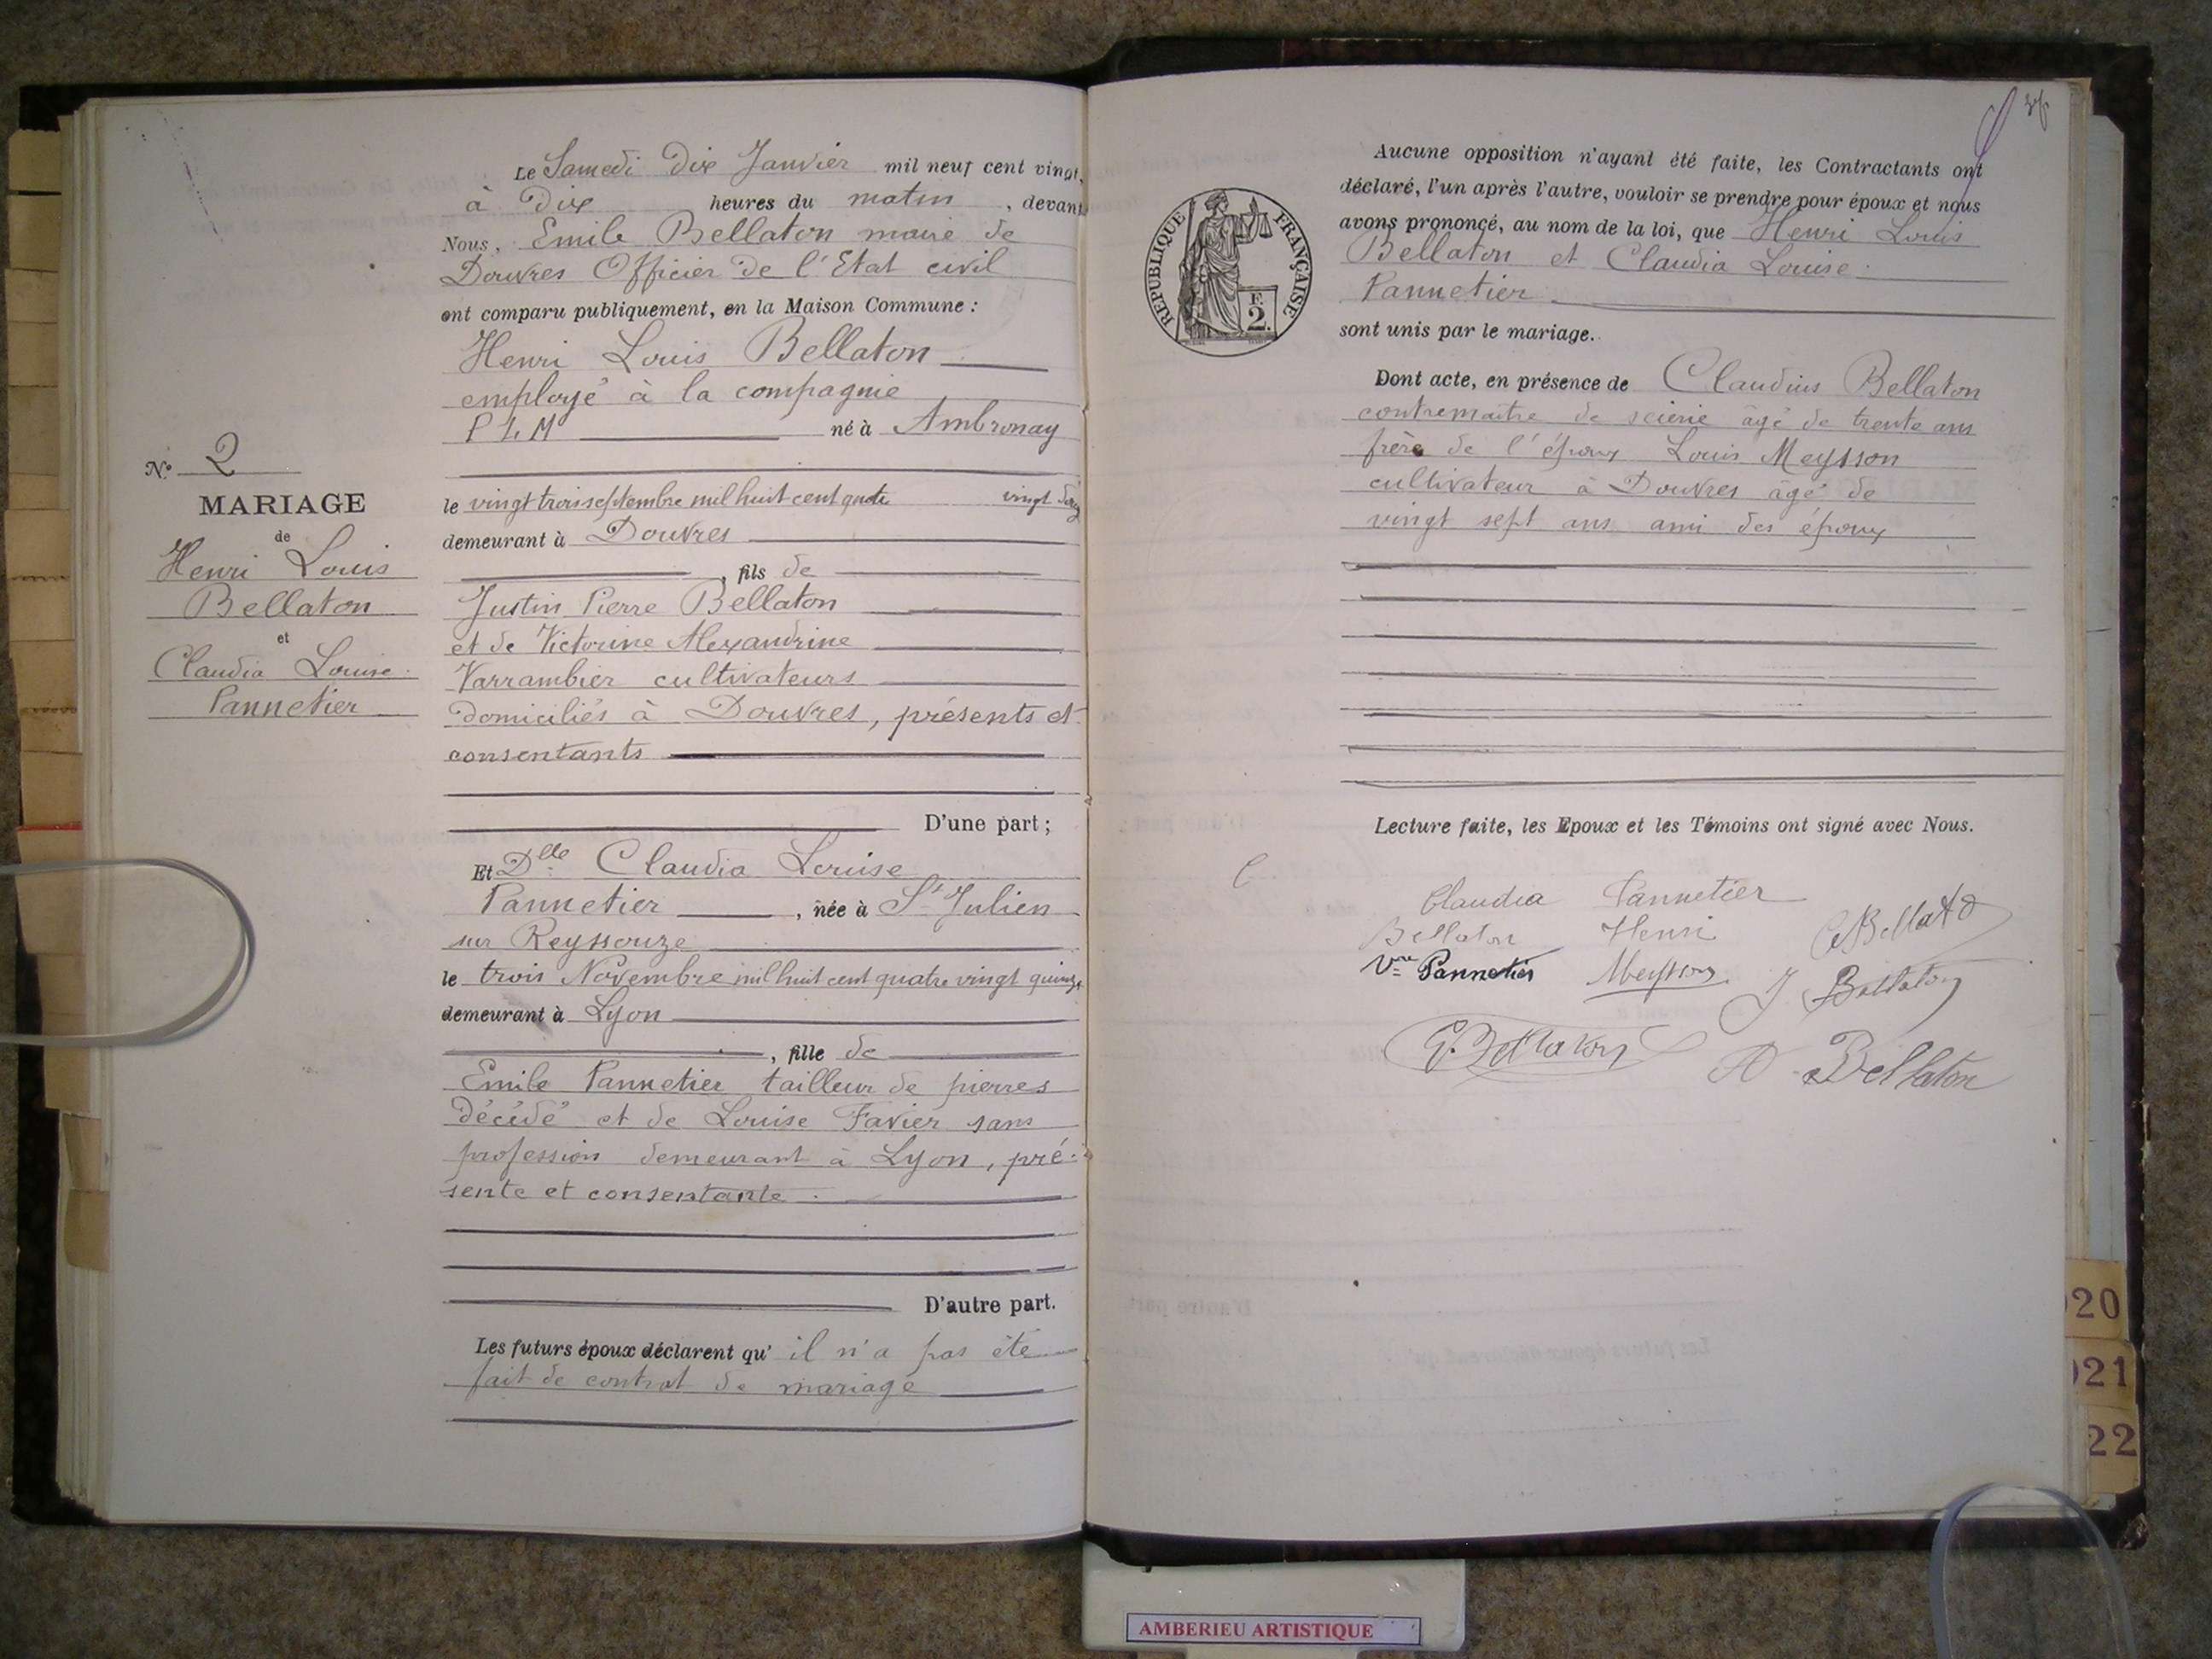 N° 2
MARIAGE
de
Henri Louis
Bellaton
et
Claudia Louise
Pannetier
Le Samedi Dix Janvier mil neuf cent vingt,
à Dix heures du matin, devant
Nous, Emile Bellaton maire de
Douvres Officier de l'Etat civil
ont comparu publiquement, en la Maison Commune :
Henri Louis Bellaton
employé à la compagnie
P L M né à Ambronay
le vingt trois septembre mil huit cent quatre vingt
demeurant à Douvres
, fils de
Justin Pierre Bellaton
et de Victorine Alexandrine
Varrambier cultivateurs
domiciliés à Douvres, présents et
consentants
D'une part ;
Et Dlle Claudia Louise
Pannetier, née à St Julien
sur Reyssouze
le trois Novembre mil huit cent quatre vingt quinze
demeurant à Lyon
, fille de
Emile Pannetier tailleur de pierres
décédé et de Louise Favier sans
profession demeurant à Lyon, pré-
sente et consentante.
D'autre part.
Les futurs époux déclarent qu' il n'a pas été
fait de contrat de mariage
REPUBLIQUE FRANÇAISE
F.
2.
Aucune opposition n'ayant été faite, les Contractants ont
déclaré, l'un après l'autre, vouloir se prendre pour époux et nous
avons prononcé, au nom de la loi, que Henri Louis
Bellaton et Claudia Louise
Pannetier
sont unis par le mariage.
Dont acte, en présence de Claudius Bellaton
contremaître de scierie âgé de trente ans
frère de l'époux Louis Meysson
cultivateur à Douvres âgé de
vingt sept ans ami des époux
Lecture faite, les Epoux et les Témoins ont signé avec Nous.
Claudia Pannetier
Bellaton Henri
C Bellato
Vve Pannetier Meysson
J. Bellaton
E. Bellaton
A. Bellaton
20
21
22
AMBERIEU ARTISTIQUE